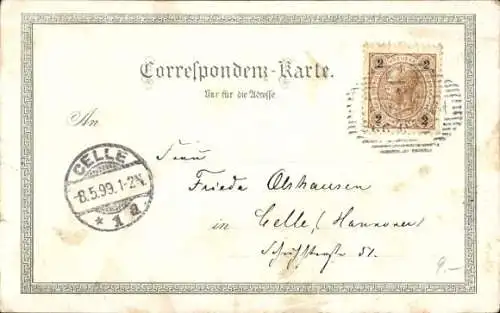 Correspondenz-Karte.
Nur für die Adresse
An
2 2
2 2
Frau
CELLE
-8.5.99.1-2N.
* 1 a
Frieda Olshausen
in Celle (Hannover)
51.
9.-